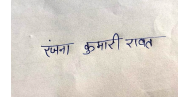 रंजना कुमारी रावत